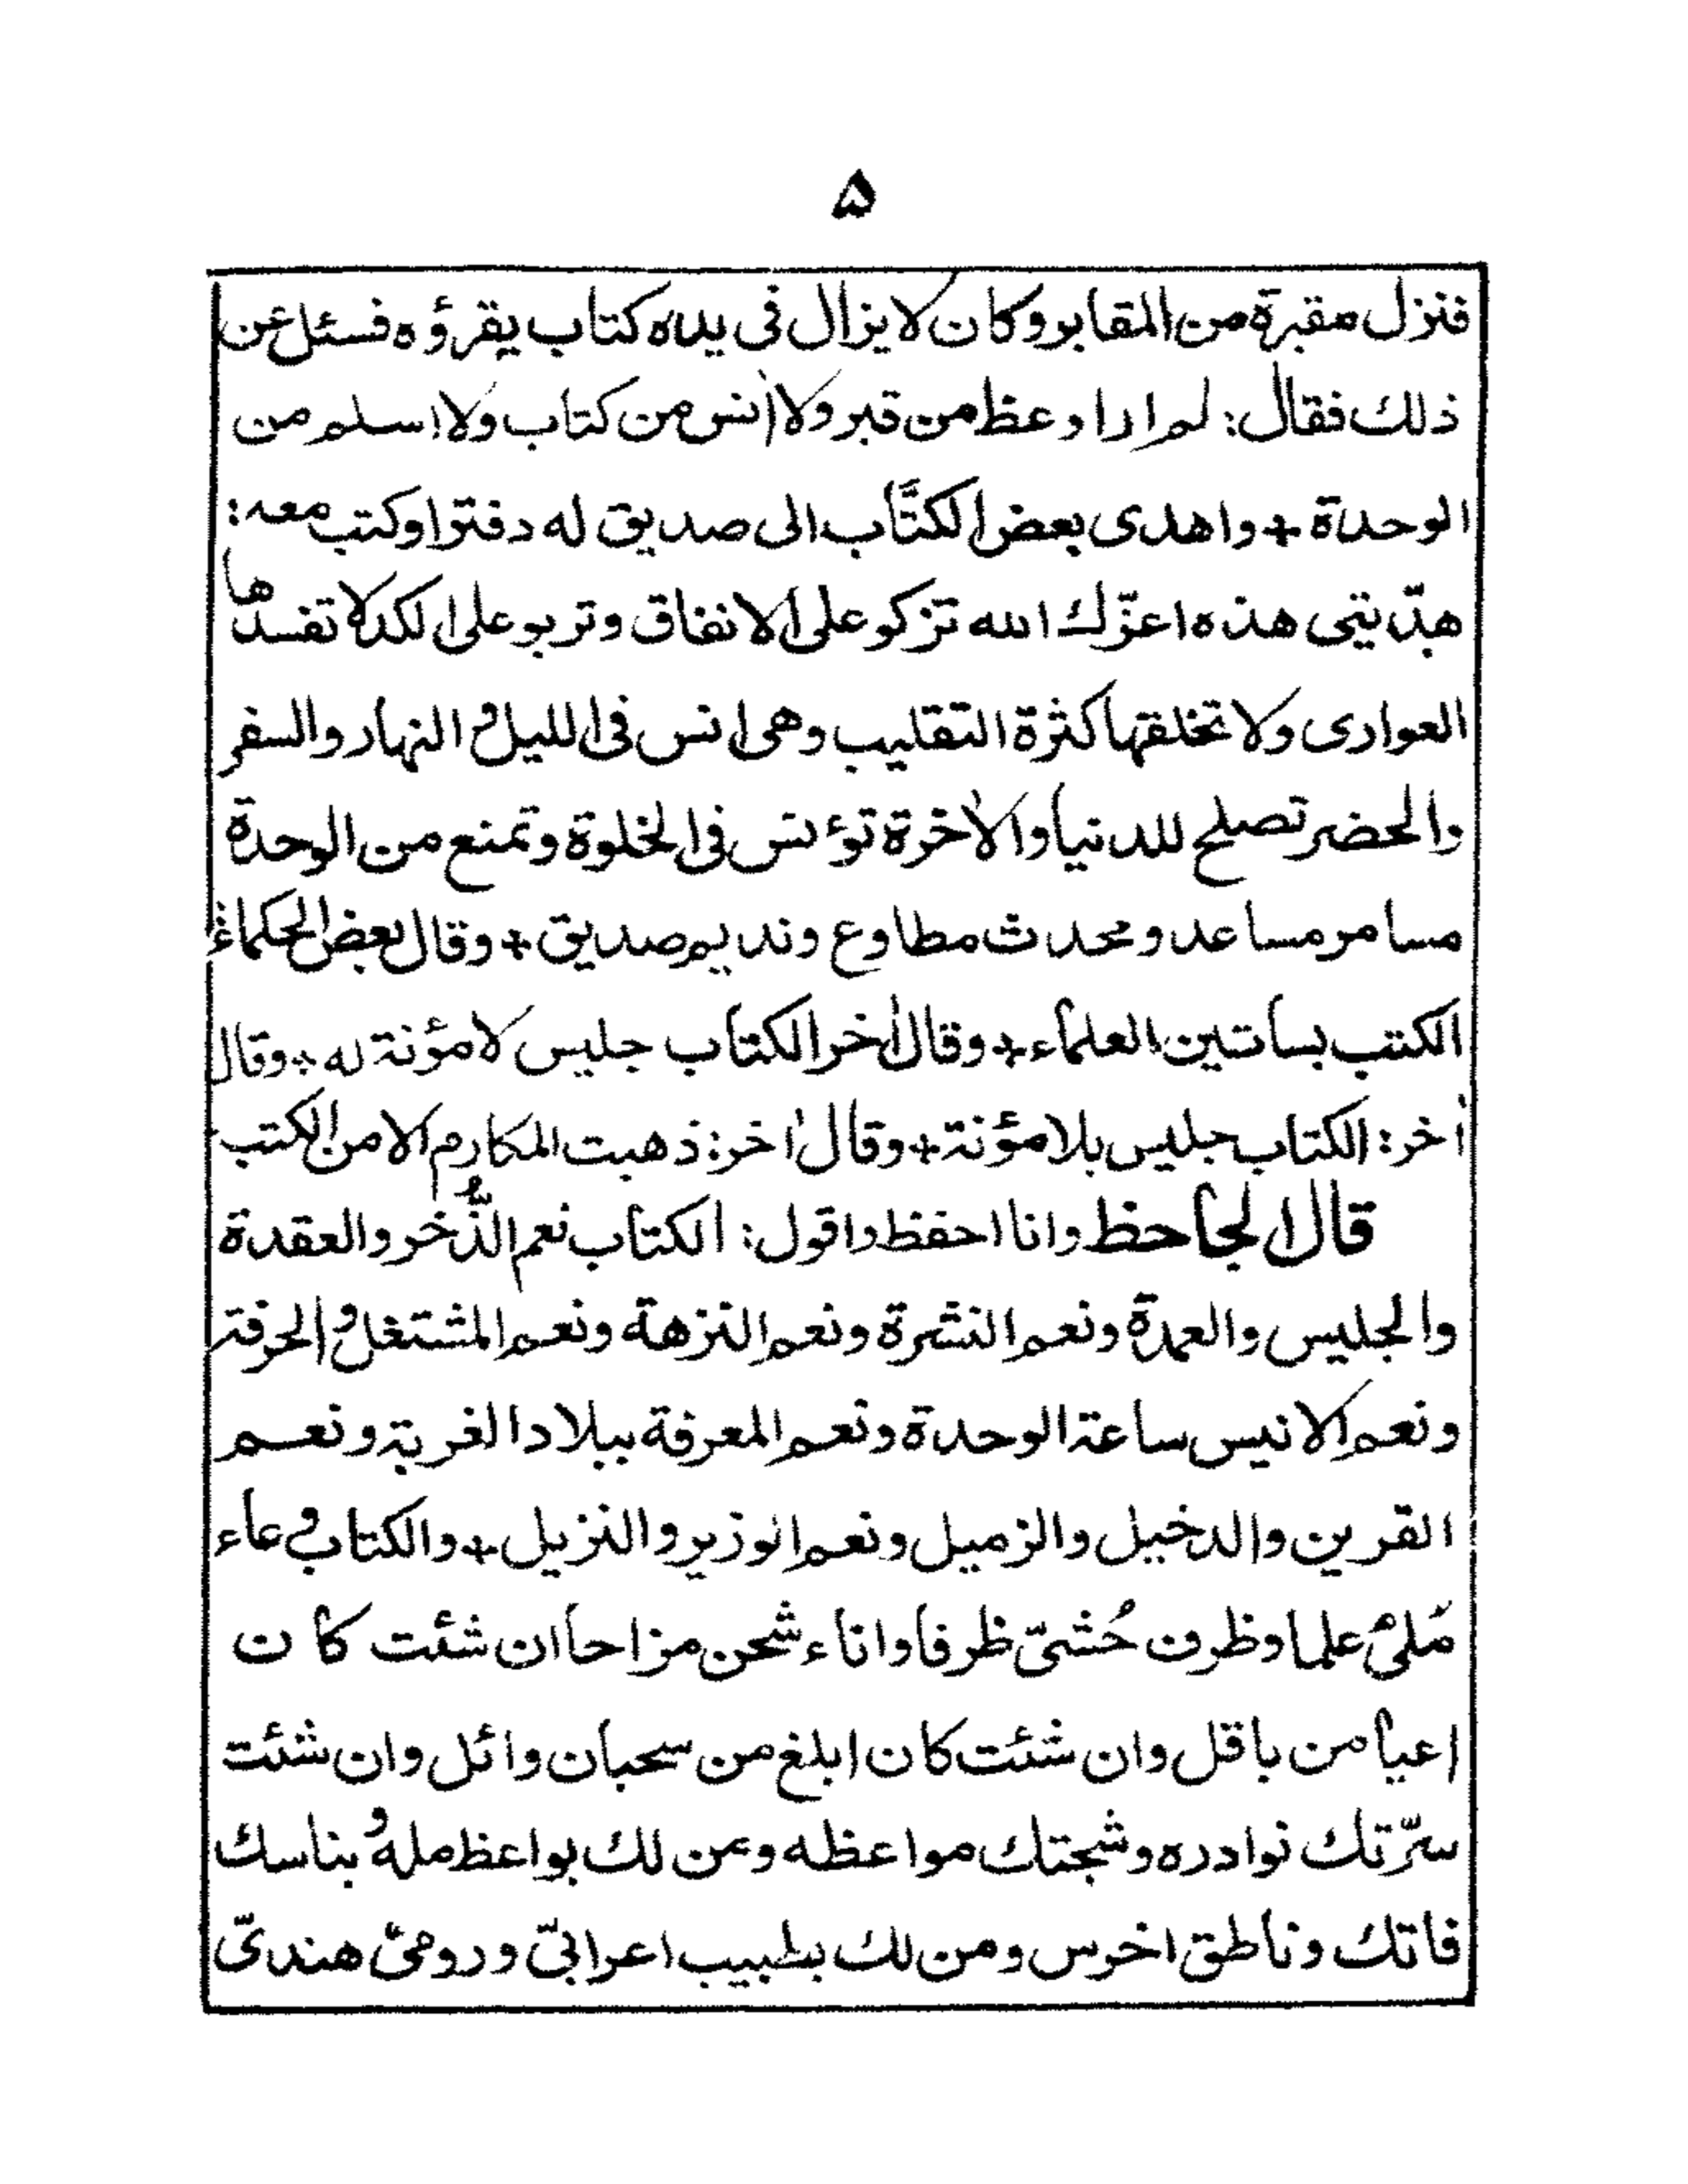 ۵
فنزل مقبرة من المقابر وكان لا يزال فى يده كتاب يقرؤه فسئل عن
ذلك فقال: لم ار اوعظ من قبر ولا اٰنس من كتاب ولا اسلم من
الوحدة + واهدى بعض الكتَّاب الى صديق له دفترا وكتب معه:
هدّيتى هذه اعزّك الله تزكو على الانفاق وتربو على الكد لا تفسدها
العوارى ولا تخلقها كثرة التقليب وهى انس فى الليل و النهار والسفر
والحضر تصلح للدنيا والاٰخرة تؤنس فى الخلوة وتمنع من الوحدة
مسامر مساعد ومحدث مطاوع ونديم صديق + وقال بعض الحكماء:
الكتب بساتين العلماء + وقال اٰخر الكتاب جليس لا مؤنة له + وقال
اٰخر: الكتاب جليس بلا مؤنة + وقال اٰخر: ذهبت المكارم الا من الكتب
قال الجاحظ وانا احفظ واقول: الكتاب نعم الذُّخر والعقدة
والجليس والعمدة ونعم النشرة ونعم النزهة ونعم المشتغل و الحرفة
ونعم الانيس ساعة الوحدة ونعم المعرفة ببلاد الغربة ونعم
القرين والدخيل والزميل ونعم الوزير والنزيل + والكتاب وعاء
مُلئ علما وظرف حُشىّ ظرفا واناء شحن مزاحا ان شئت كان
اعيا من باقل وان شئت كان ابلغ من سحبان وائل وان شئت
سرّتك نوادره وشجتك مواعظه ومن لك بواعظ مله و بناسك
فاتك وناطق اخرس ومن لك بطبيب اعرابىّ ورومىّ هندىّ